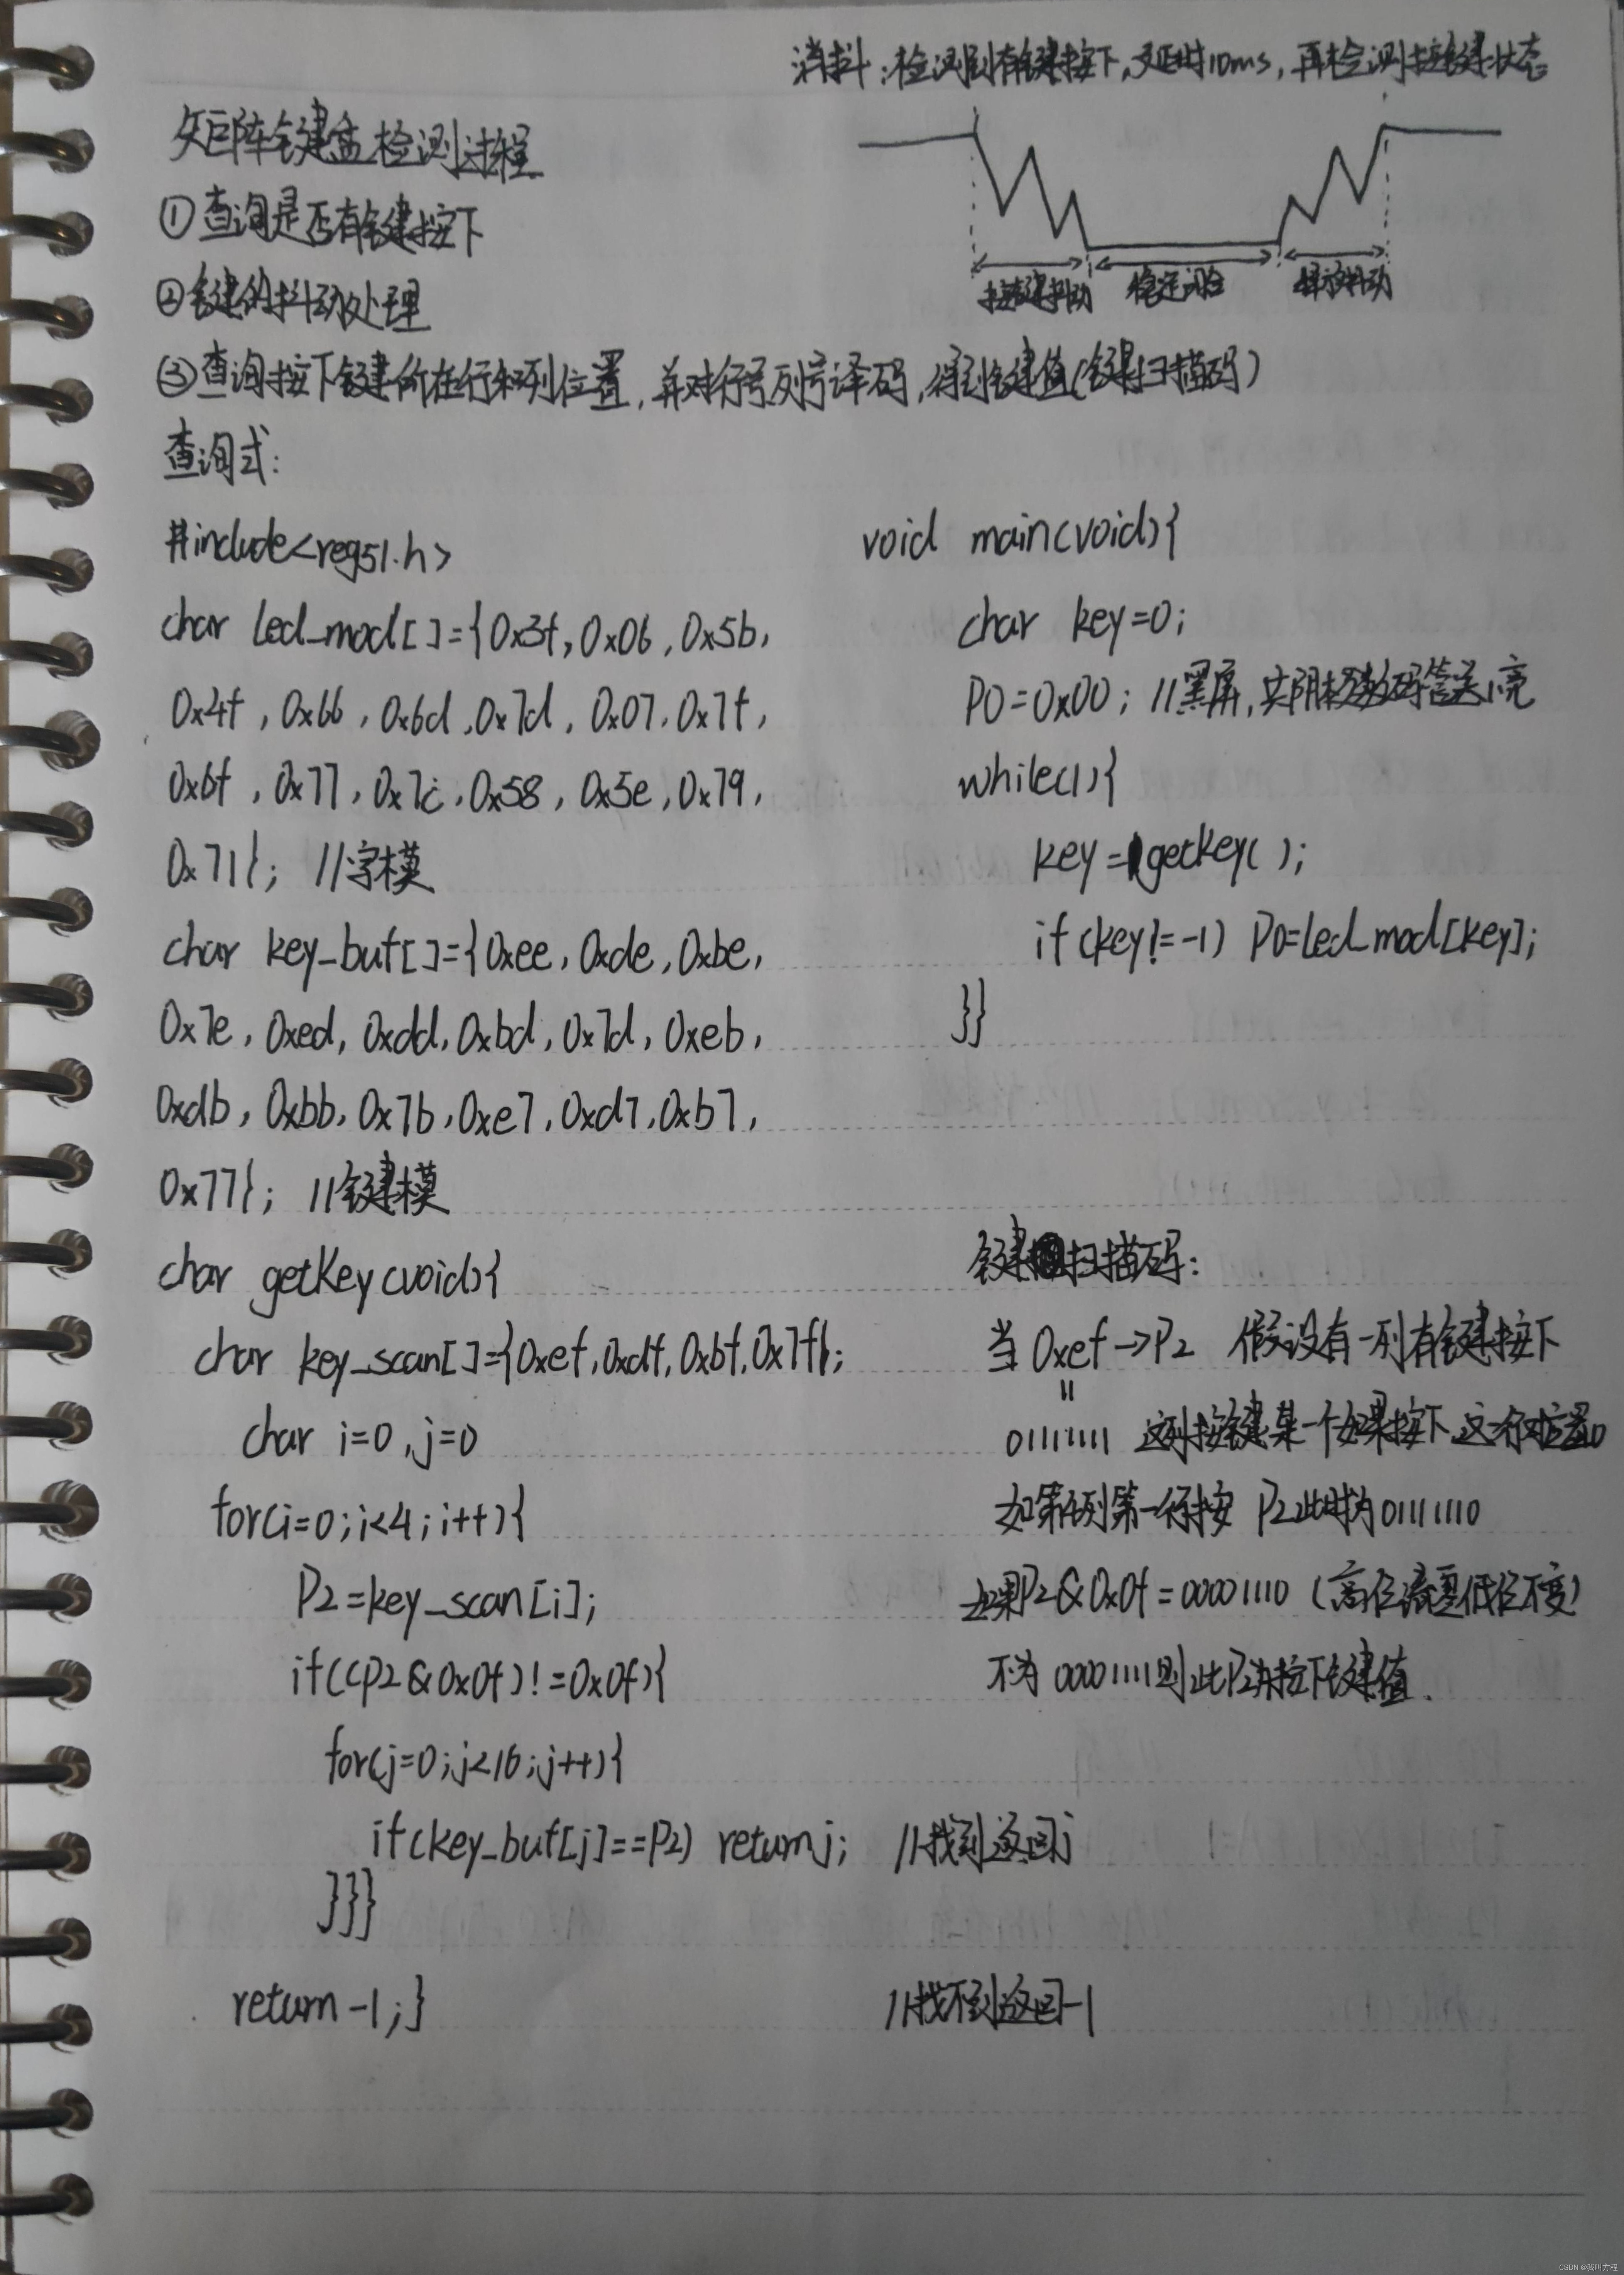 消抖:检测到有键按下,延时10ms,再检测按键状态
矩阵键盘检测过程
①查询是否有键按下
②键的抖动处理
按键抖动 稳定闭合 释放抖动
③查询按下键所在行和列位置,并对行号列号译码,得到键值(键扫描码)
查询式:
#include<reg51.h>
char led_mod[]={0x3f,0x06,0x5b,
0x4f,0x66,0x6d,0x7d,0x07,0x7f,
0x6f,0x77,0x7c,0x58,0x5e,0x79,
0x71}; //字模
char key_buf[]={0xee,0xde,0xbe,
0x7e,0xed,0xdd,0xbd,0x7d,0xeb,
0xdb,0xbb,0x7b,0xe7,0xd7,0xb7,
0x77}; //键模
char getKey(void){
char key_scan[]={0xef,0xdf,0xbf,0x7f};
char i=0,j=0
for(i=0;i<4;i++){
P2=key_scan[i];
if((P2&0x0f)!=0x0f){
for(j=0;j<16;j++){
if(key_buf[j]==P2) return j; //找到返回j
}}}
return -1;} //找不到返回-1
void main(void){
char key=0;
P0=0x00; //黑屏,共阴极数码管送1亮
while(1){
key=getKey();
if(key!=-1) P0=led_mod[key];
}}
键扫描码:
当0xef→P2 假设有一列有键按下
=
01111111 这列按键某一个如果按下,这一行对应置0
如第列第一行按 P2此时为01111110
如果P2&0x0f=00001110(高位清零低位不变)
不为00001111则此P2为按下键值.
CSDN @我叫方程